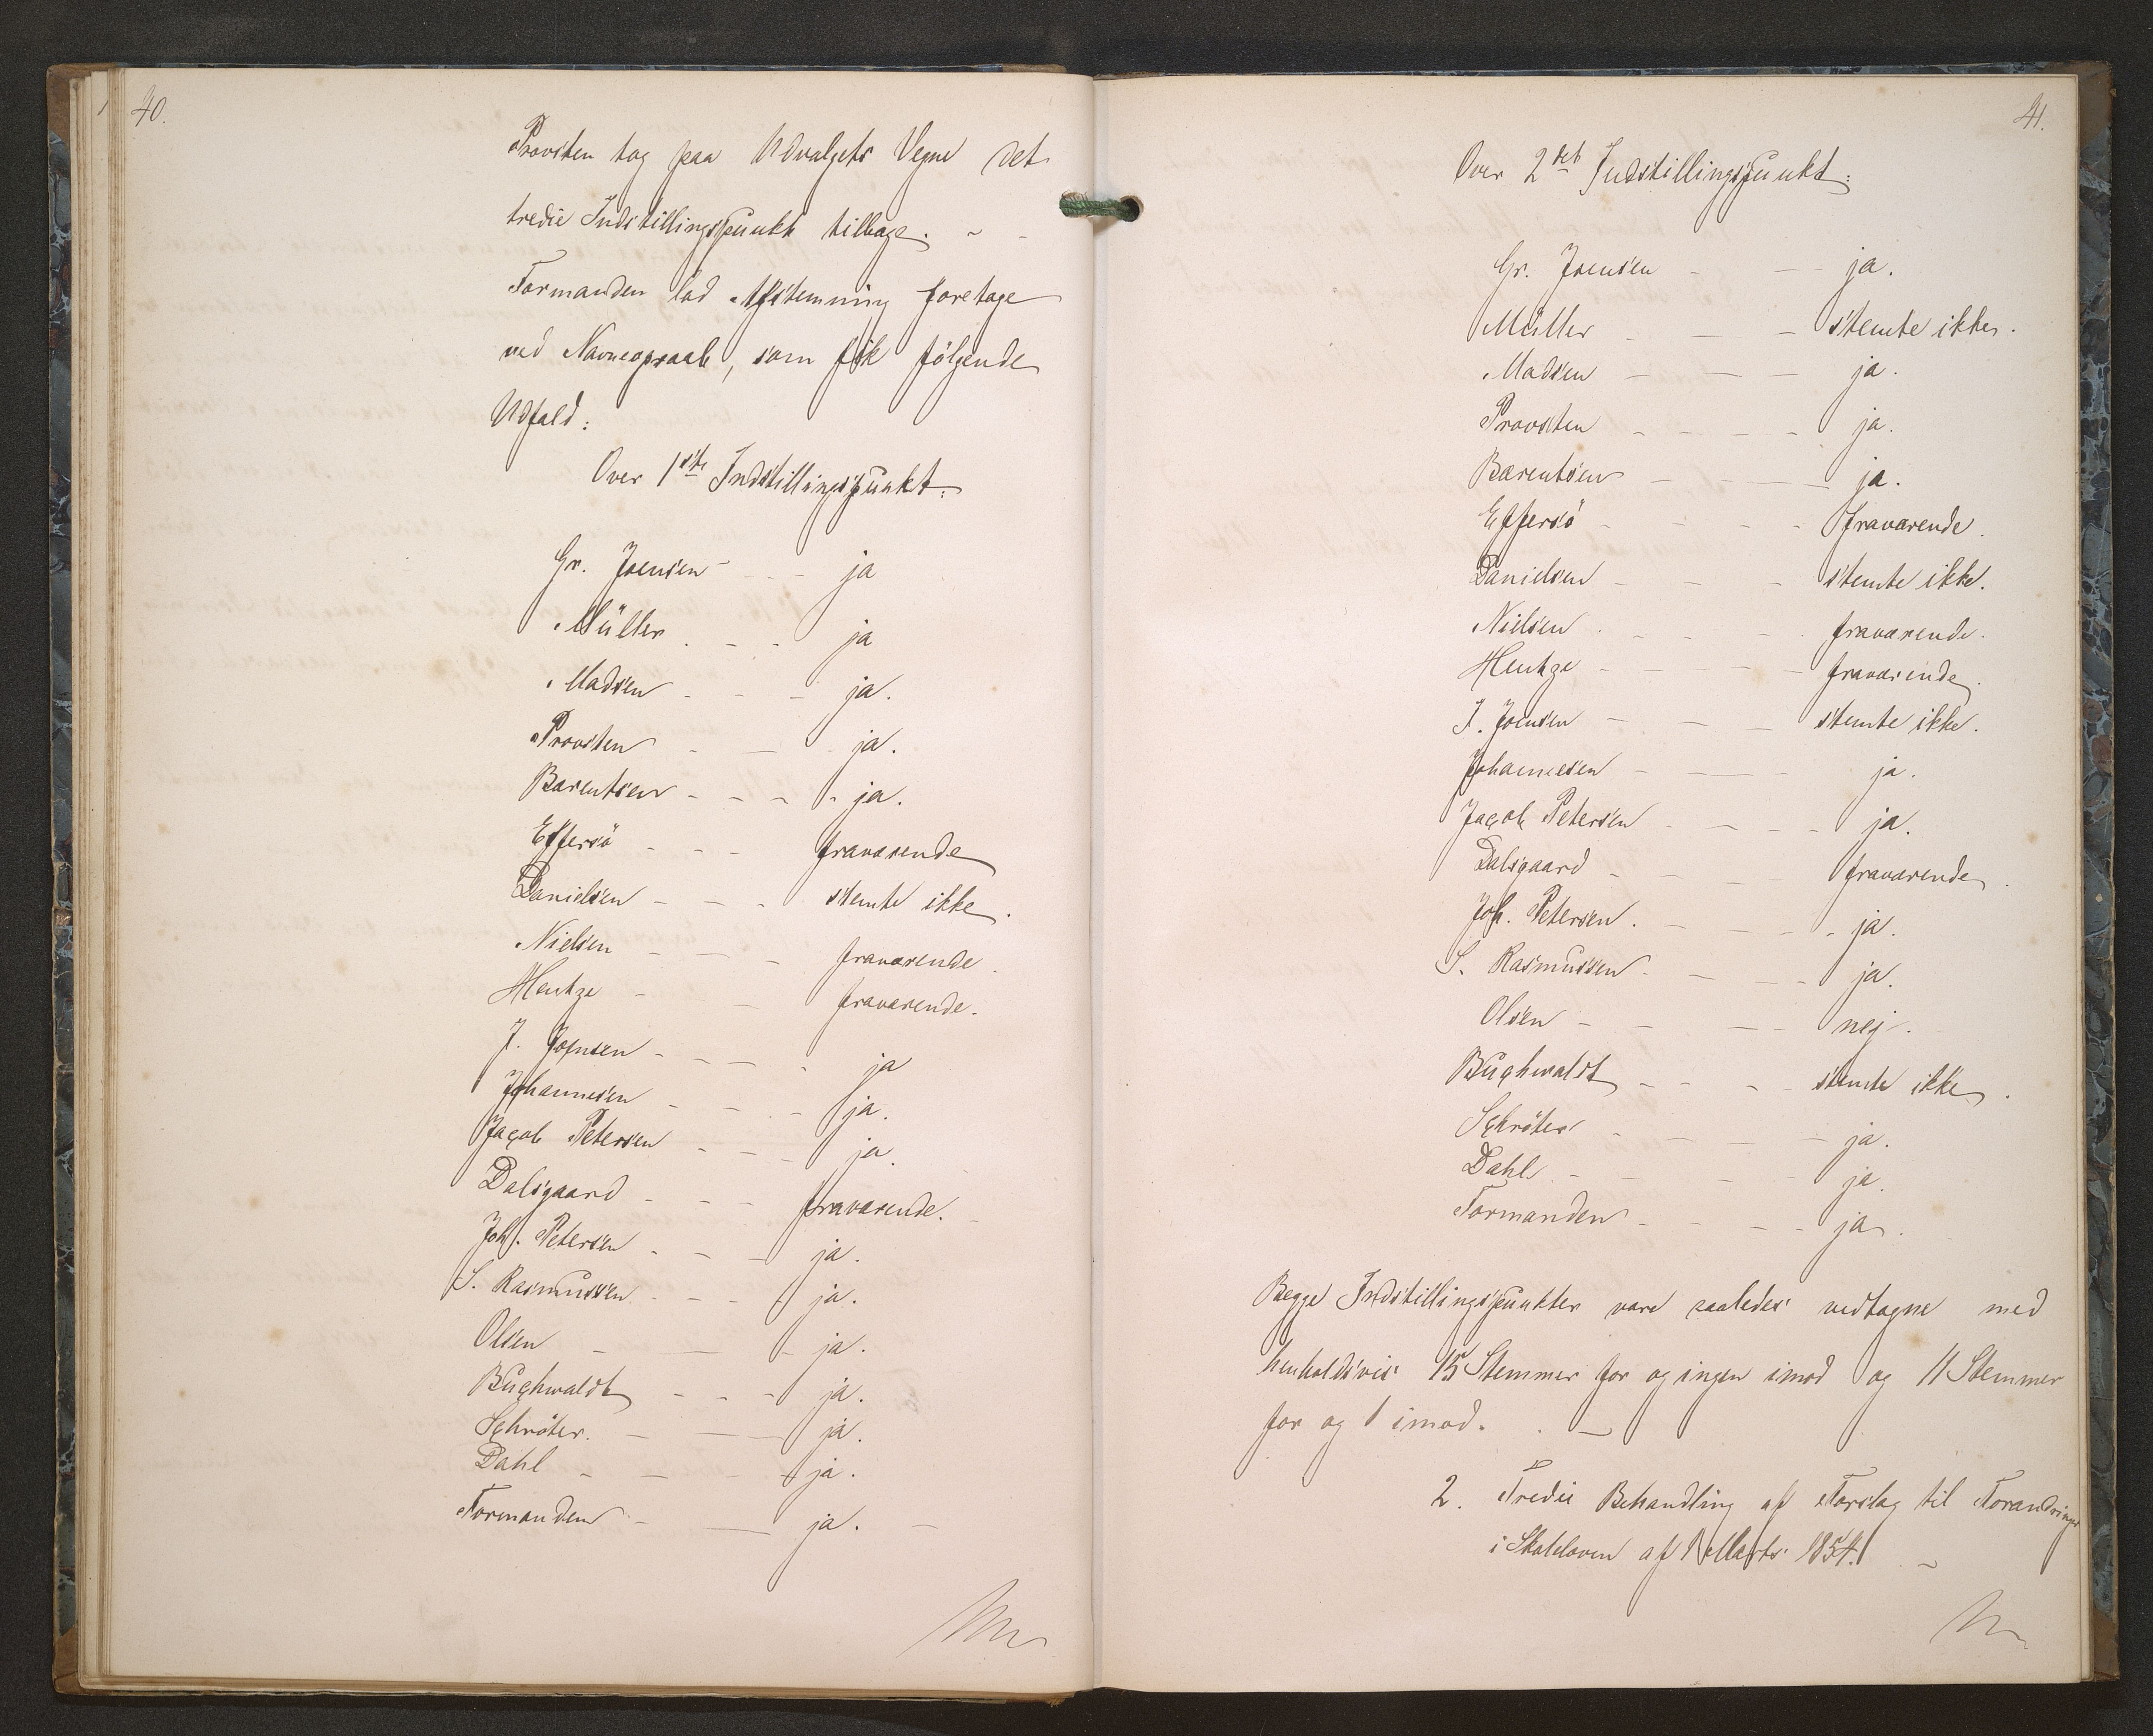 40.
Provsten tog paa Udvalgets Vegne det
tredie Indstillingspunkt tilbage. - -
Formanden lod Afstemning foretage
ved Navneopraab, som fik følgende
Udfald:
Over 1ste Indstillingspunkt:
Gr. Joensen - - - ja
Müller . - - ja
Madsen - - - ja.
Provsten - - - ja.
Barentsen - - - - ja.
Effersö - - - fraværende
Danielsen - - - stemte ikke.
Nielsen - - - fraværende.
Hentze - - - fraværende.
J. Joensen - - - - ja
Johannesen - - - - ja.
Jacob Petersen - - - ja.
Dalsgaard - - - fraværende. -
Joh. Petersen - - - ja.
S. Rasmussen - - - ja.
Olsen - - - ja.
Buchwaldt - - - ja.
Schröter. - - - ja.
Dahl - - - - ja.
Formanden - - ja. -
41.
Over 2det Indstillingspunkt:
Gr. Joensen - - - ja.
Müller - - - stemte ikke.
Madsen - - - ja.
Provsten - - - - ja.
Barentsen - - - - ja.
Effersö - - - - fraværende.
Danielsen - - - stemte ikke.
Nielsen . - - - fraværende.
Hentze - - - - - fraværende.
J. Joensen - - - stemte ikke.
Johannesen - - - ja.
Jacob Petersen - - - - ja.
Dalsgaard - - - fraværende.
Joh. Petersen . - - - - ja.
S. Rasmussen - - - - ja.
Olsen - - - - nej.
Buchwaldt - - - - stemte ikke.
Schröter - - - - - ja.
Dahl - - - - ja.
Formanden - - - - ja.
Begge Indstillingspunkter vare saaledes vedtagne med
henholdsvis 15 Stemmer for og ingen imod og 11 Stemmer
for og 1 imod. . -
2. Tredie Behandling af Forslag til Forandringer
i Skoleloven af 1 Marts 1854. -